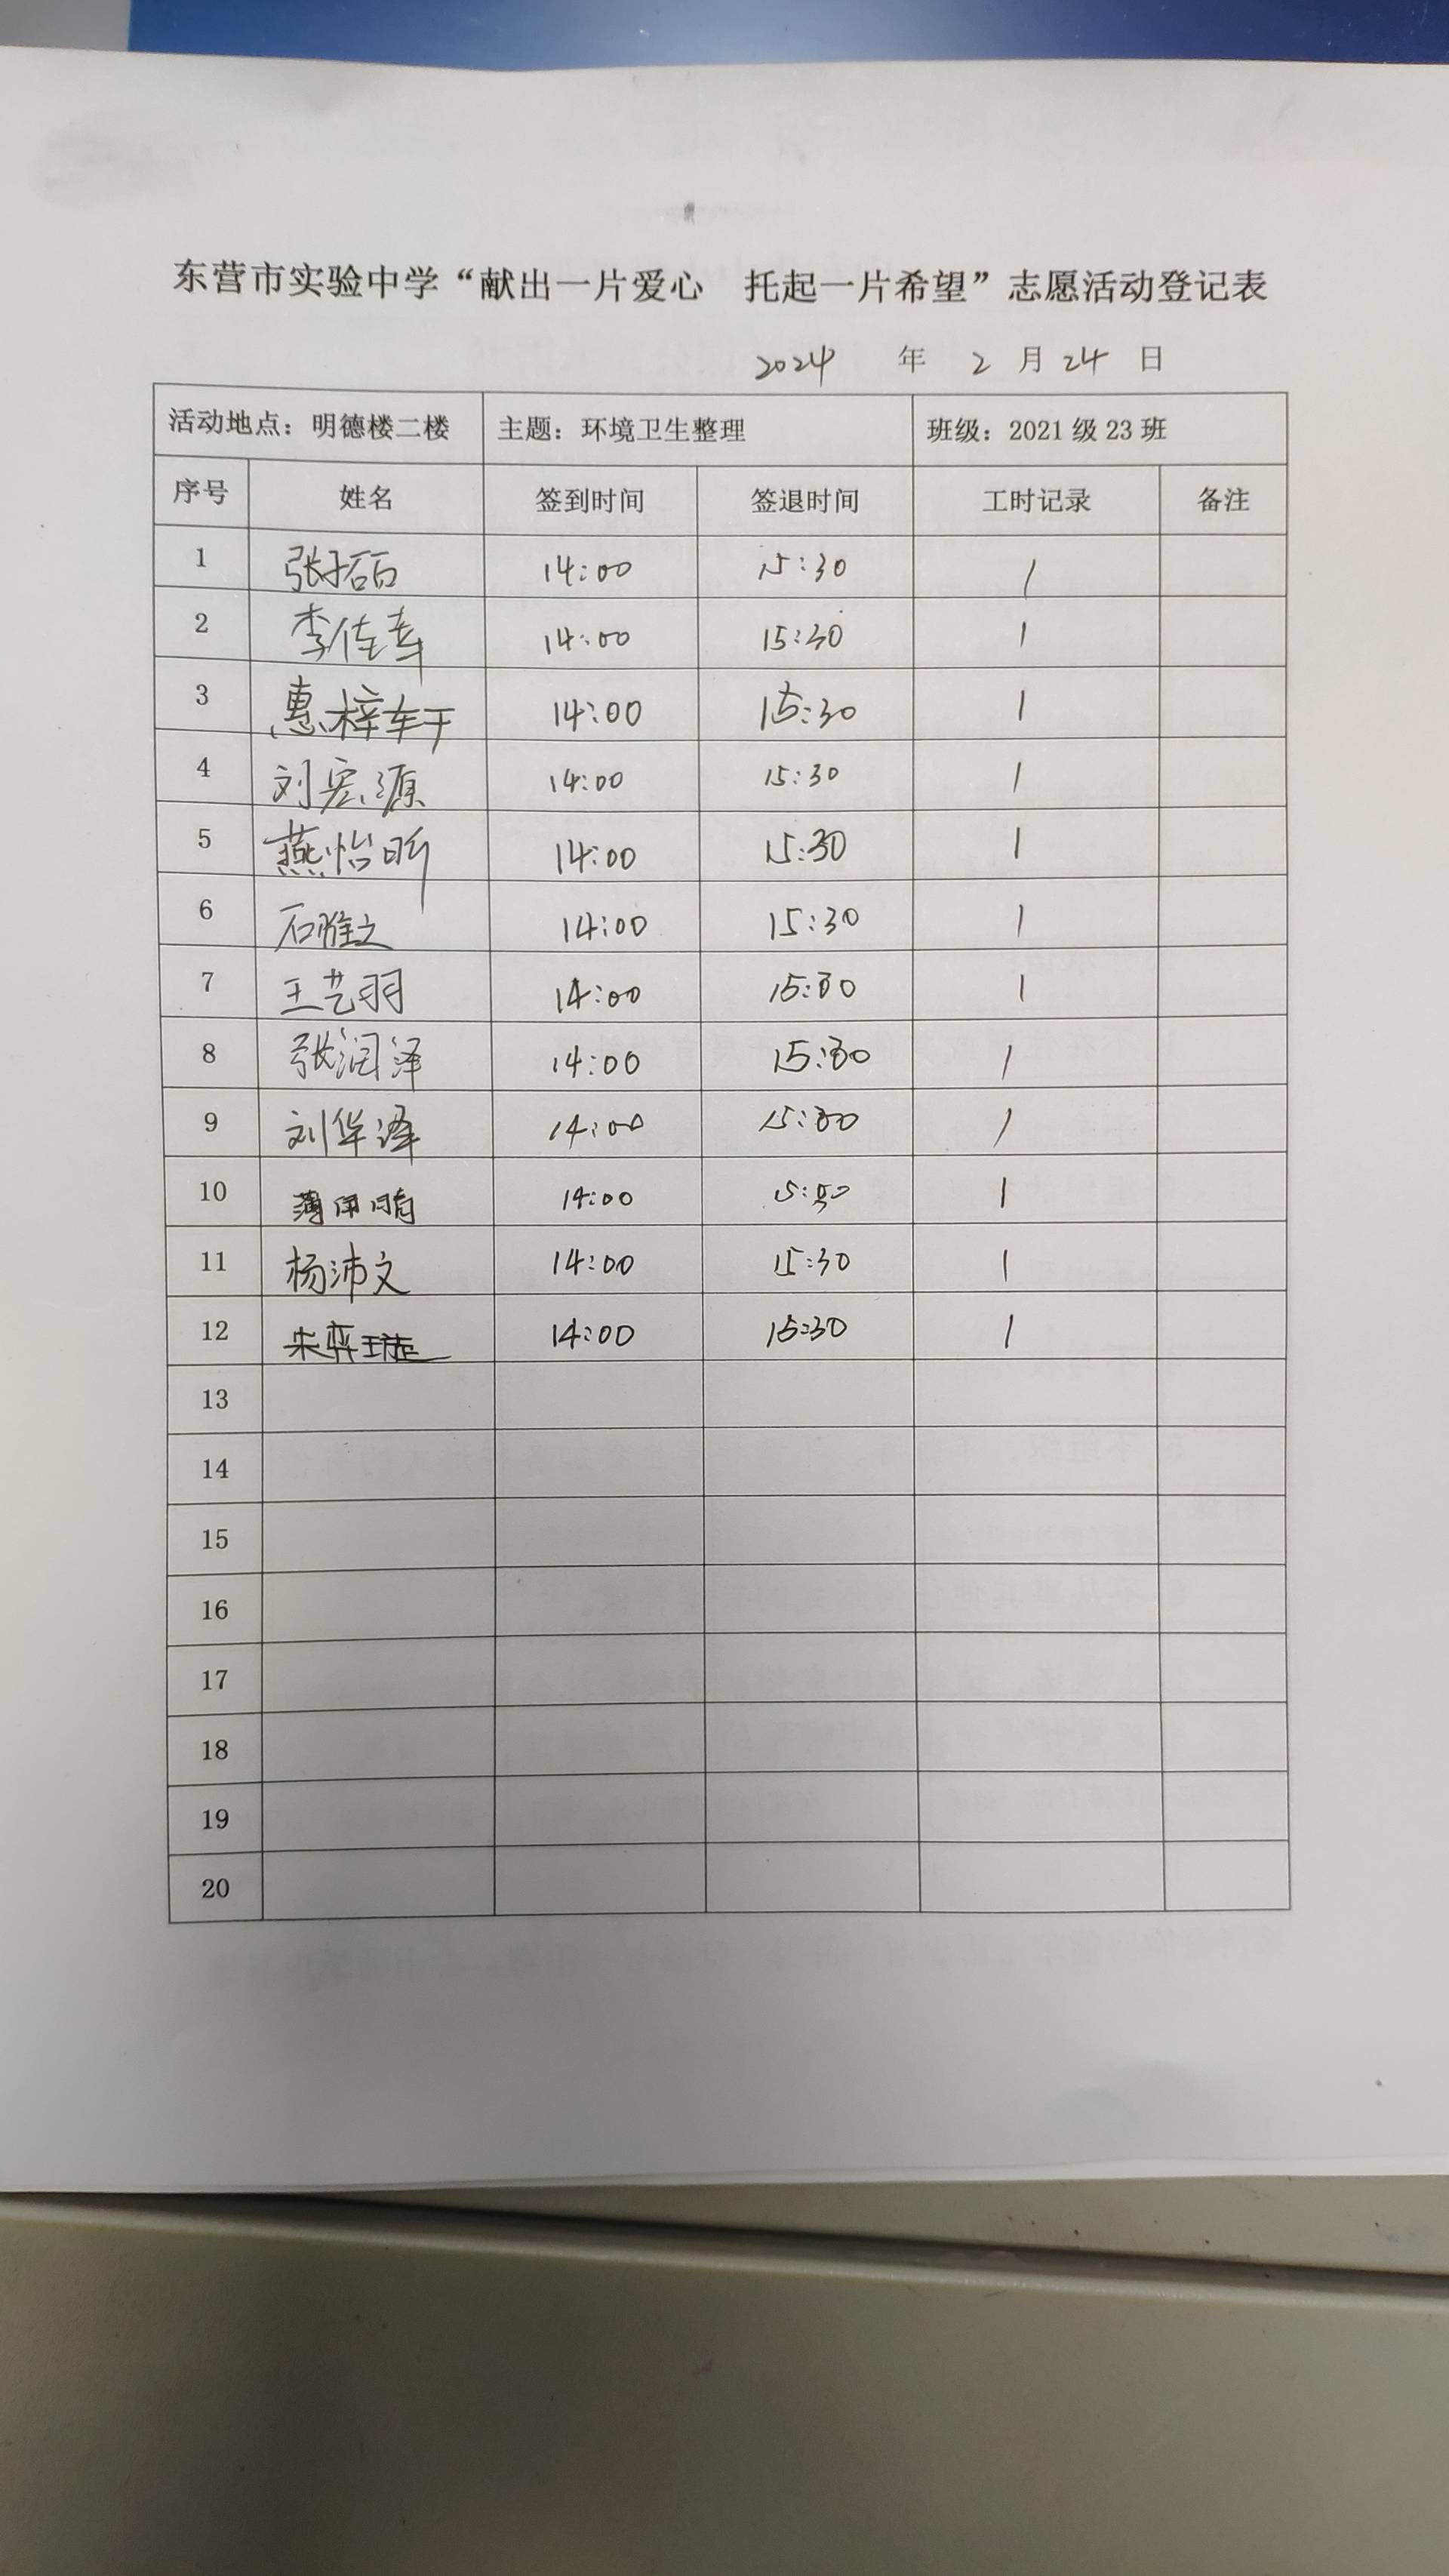 东营市实验中学“献出一片爱心 托起一片希望”志愿活动登记表
2024 年 2 月 24 日
活动地点：明德楼二楼 主题：环境卫生整理 班级：2021级23班
序号 姓名 签到时间 签退时间 工时记录 备注
1 张 14:00 15:30 1
2 李佳 14:00 15:30 1
3 惠梓轩 14:00 15:30 1
4 刘宏源 14:00 15:30 1
5 燕怡昕 14:00 15:30 1
6 石雅文 14:00 15:30 1
7 王艺羽 14:00 15:30 1
8 张润泽 14:00 15:30 1
9 刘华泽 14:00 15:30 1
10 薄 14:00 15:30 1
11 杨沛文 14:00 15:30 1
12 宋弈璇 14:00 15:30 1
13
14
15
16
17
18
19
20